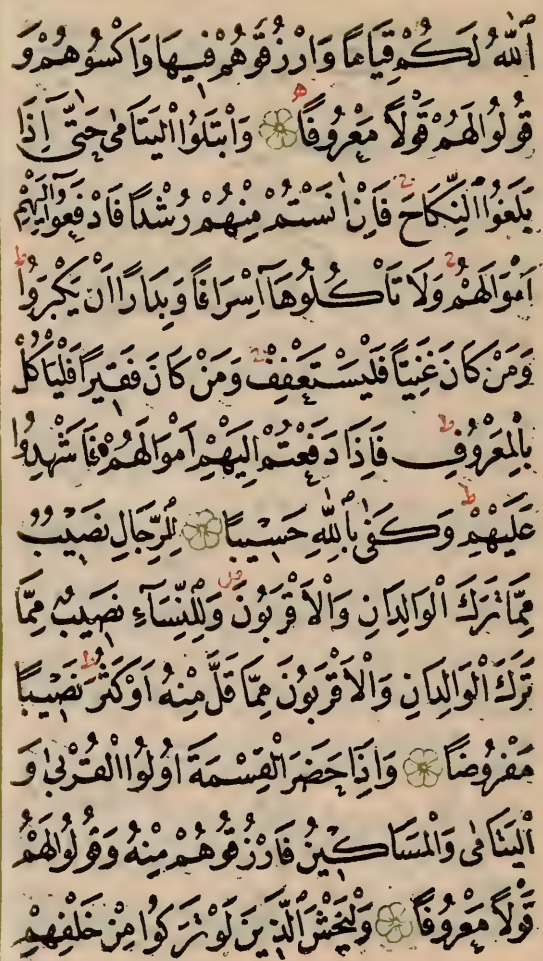 اَللّٰهُ لَكُمْ قِيَامًا وَارْزُقُوهُمْ فِيهَا وَاكْسُوهُمْ وَ
قُولُوا لَهُمْ قَوْلًا مَعْرُوفًا ۝ وَابْتَلُوا الْيَتَامٰى حَتّٰى اِذَا
بَلَغُوا النِّكَاحَ فَاِنْ اٰنَسْتُمْ مِنْهُمْ رُشْدًا فَادْفَعُوا اِلَيْهِمْ
اَمْوَالَهُمْ وَلَا تَأْكُلُوهَا اِسْرَافًا وَبِدَارًا اَنْ يَكْبَرُوا ط
وَمَنْ كَانَ غَنِيًّا فَلْيَسْتَعْفِفْ وَمَنْ كَانَ فَقِيرًا فَلْيَأْكُلْ
بِالْمَعْرُوفِ ط فَاِذَا دَفَعْتُمْ اِلَيْهِمْ اَمْوَالَهُمْ فَاَشْهِدُوا
عَلَيْهِمْ ط وَكَفٰى بِاللّٰهِ حَسِيبًا ۝ لِلرِّجَالِ نَصِيبٌ
مِمَّا تَرَكَ الْوَالِدَانِ وَالْاَقْرَبُونَ ص وَلِلنِّسَآءِ نَصِيبٌ مِمَّا
تَرَكَ الْوَالِدَانِ وَالْاَقْرَبُونَ مِمَّا قَلَّ مِنْهُ اَوْ كَثُرَ ط نَصِيبًا
مَفْرُوضًا ۝ وَاِذَا حَضَرَ الْقِسْمَةَ اُولُوا الْقُرْبٰى وَ
الْيَتَامٰى وَالْمَسَاكِينُ فَارْزُقُوهُمْ مِنْهُ وَقُولُوا لَهُمْ
قَوْلًا مَعْرُوفًا ۝ وَلْيَخْشَ الَّذِينَ لَوْ تَرَكُوا مِنْ خَلْفِهِمْ